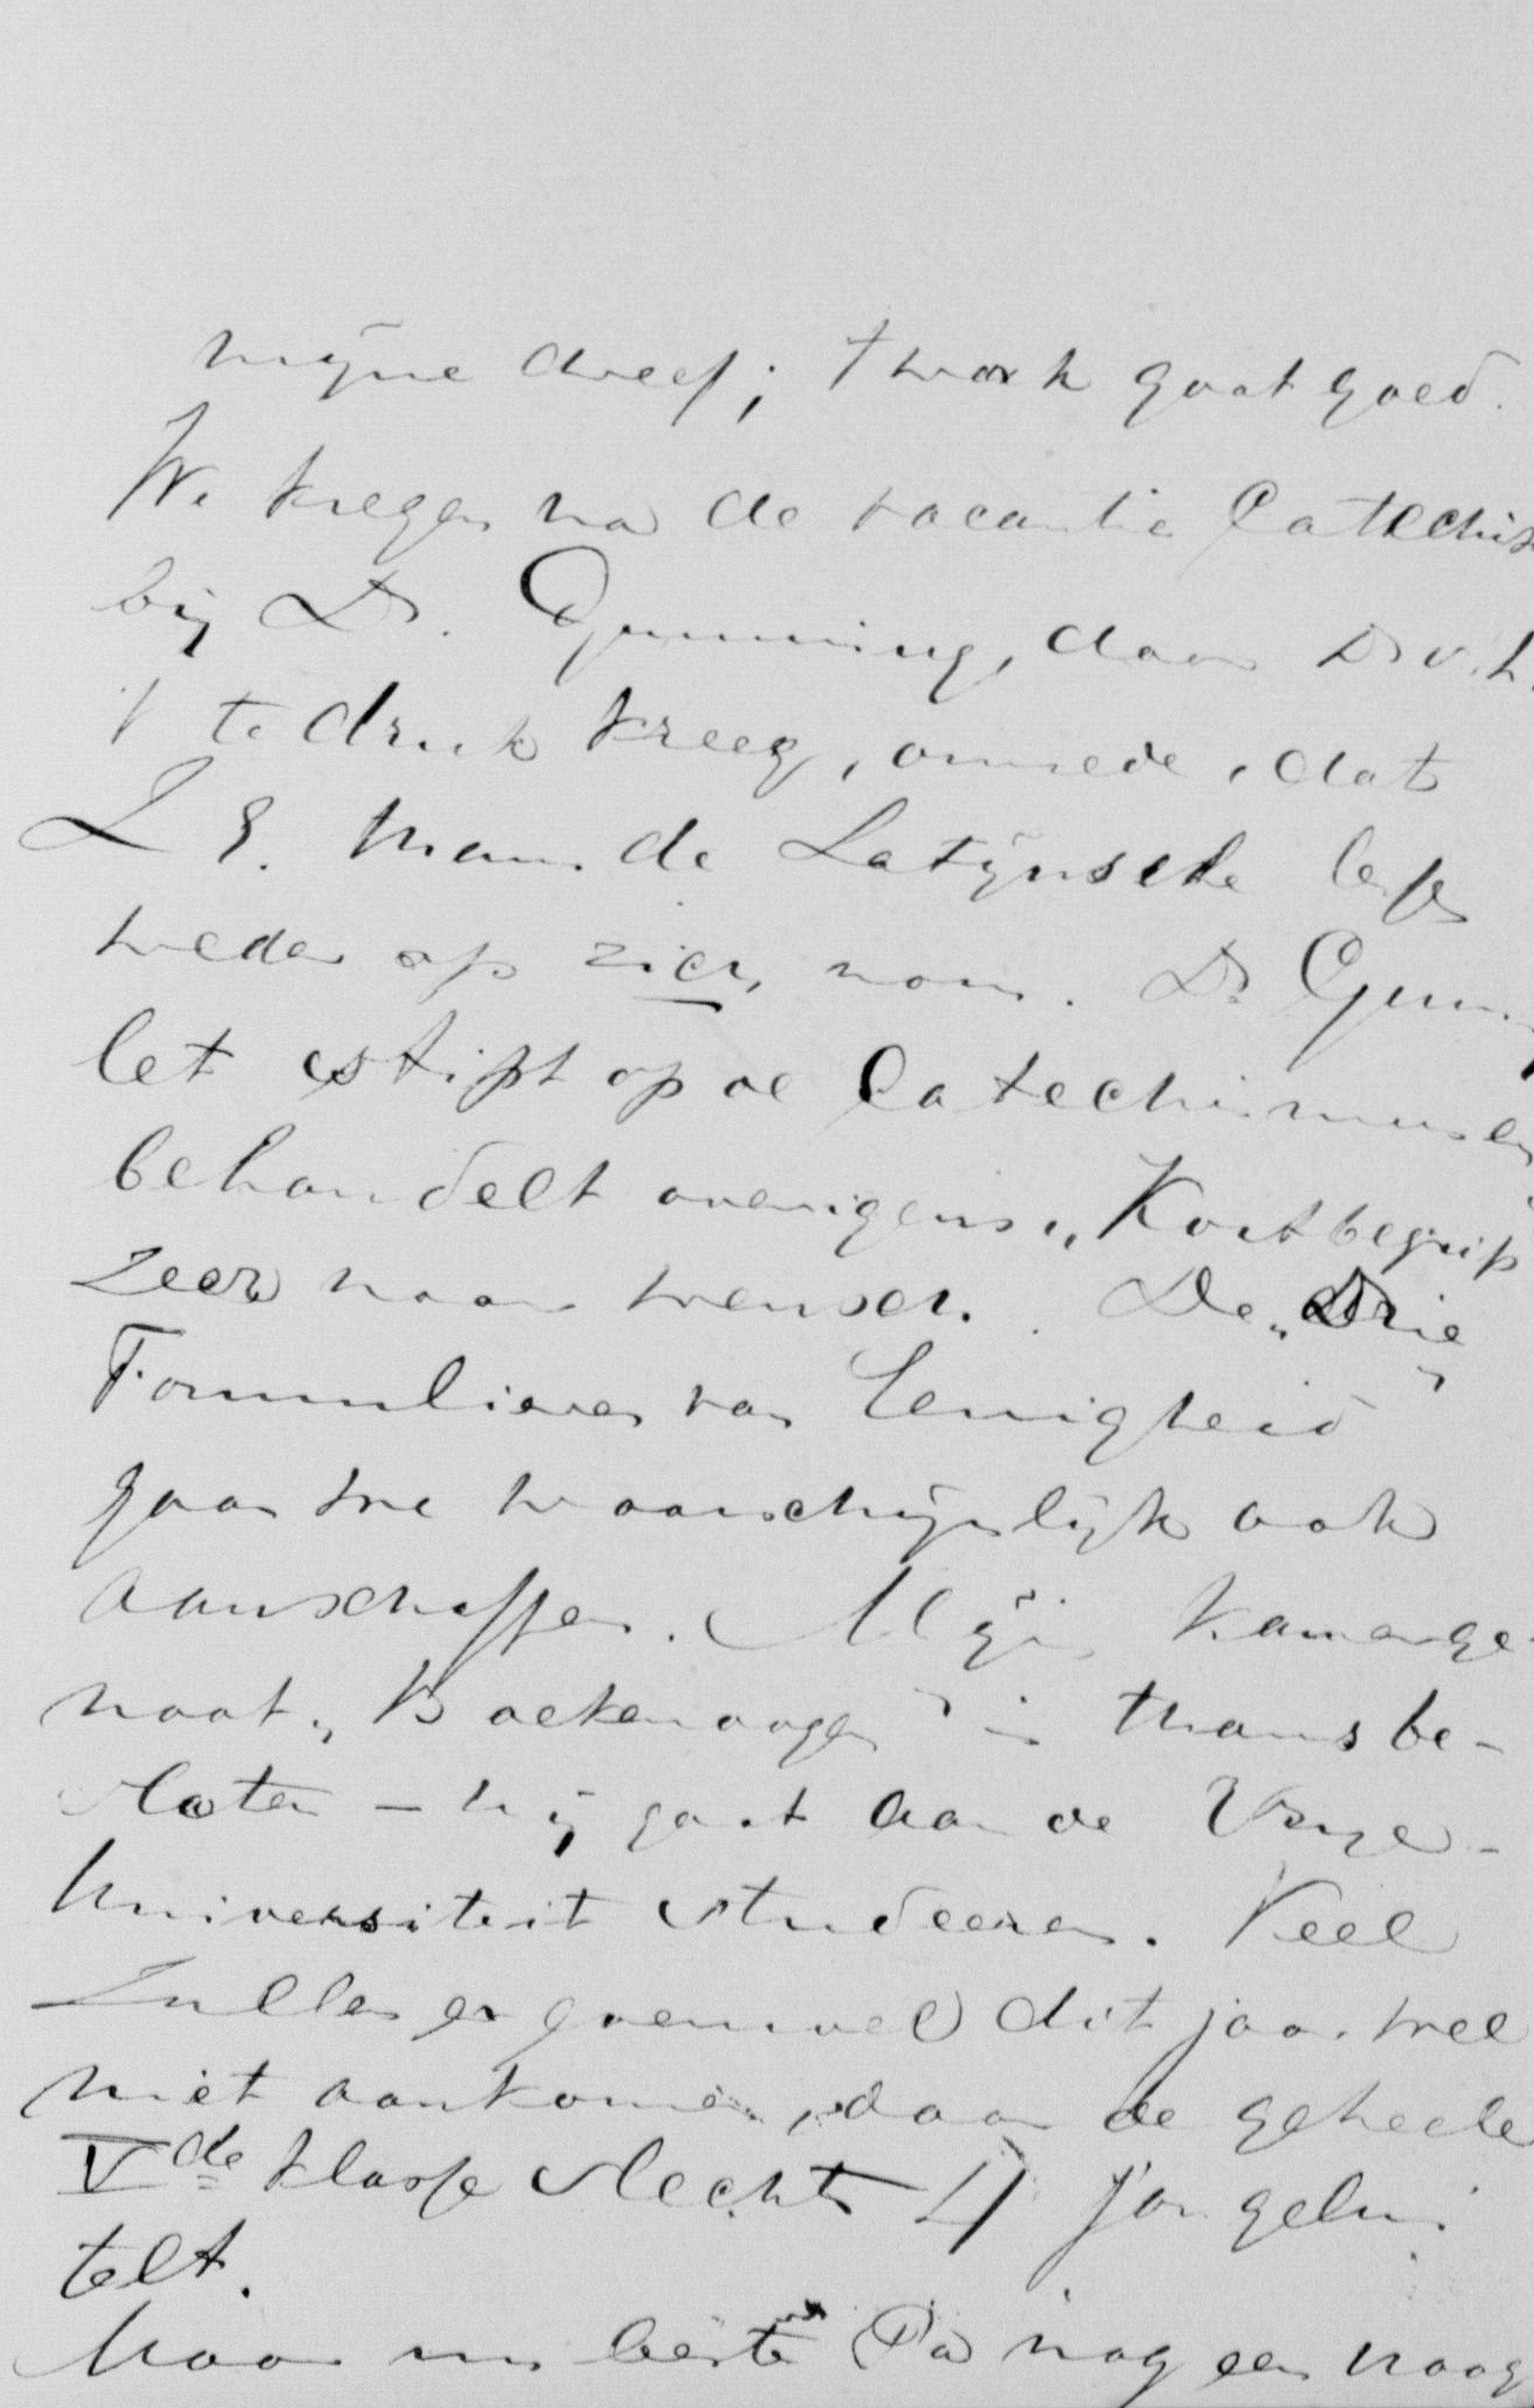 mijne dreef; 't werk gaat goed.
We kregen na de vacantie Catechis
bij Dr. Gunning, daar Dr v. L.
't te druk kreeg, omrede, dat
Z E. thans de Latijnsche les
weder op zich nam. Dr. Gunn.
let stipt op de Catechismus en
behandelt overigens „Kort begrip
zeer naar wensch. De „Drie
Formulieren van Eenigheid"
gaan we waarschijnlijk ook
aanschaffen. Mijn Kamerge-
noot „Boekenoogen" is thans be-
sloten – hij gaat aan de Vrije-
Universiteit studeeren. Veel
Zullen er evenwel dit jaar wel
niet aankomen, daar de geheele
Vde klasse slechts 4 jongelui
telt.
Maar nu beste Pa nog een vraag